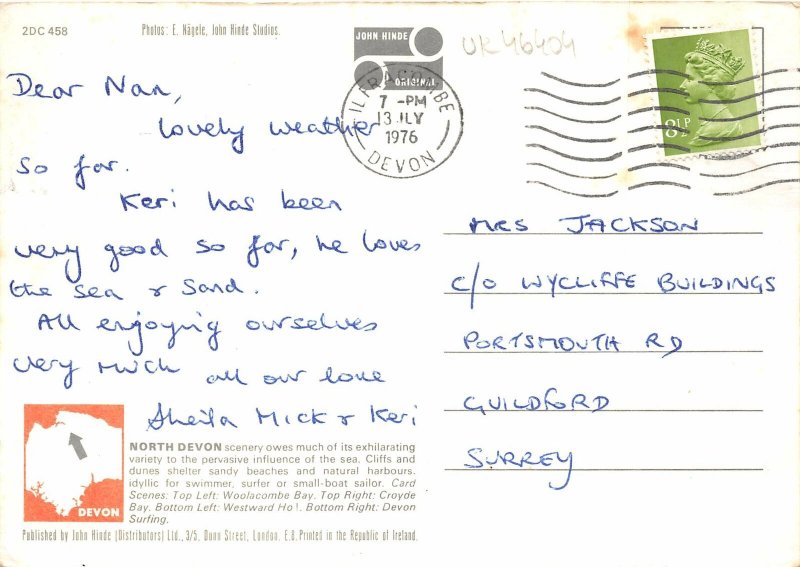 2DC 458
Photos: E. Nägele, John Hinde Studios.
JOHN HINDE
ORIGINAL
UK46404
ILFRACOMBE
7 -PM
13 JLY
1976
DEVON
8½P
Dear Nan,
lovely weather
so far.
Keri has been
very good so far, he loves
the sea & sand.
All enjoying ourselves
very much
all our love
Sheila Mick & Keri
MRS JACKSON
C/O WYCLIFFE BUILDINGS
PORTSMOUTH RD
GUILDFORD
SURREY
DEVON
NORTH DEVON scenery owes much of its exhilarating
variety to the pervasive influence of the sea. Cliffs and
dunes shelter sandy beaches and natural harbours,
idyllic for swimmer, surfer or small-boat sailor. Card
Scenes: Top Left: Woolacombe Bay. Top Right: Croyde
Bay. Bottom Left: Westward Ho!. Bottom Right: Devon
Surfing.
Published by John Hinde (Distributors) Ltd., 3/5, Dunn Street, London, E.8. Printed in the Republic of Ireland.